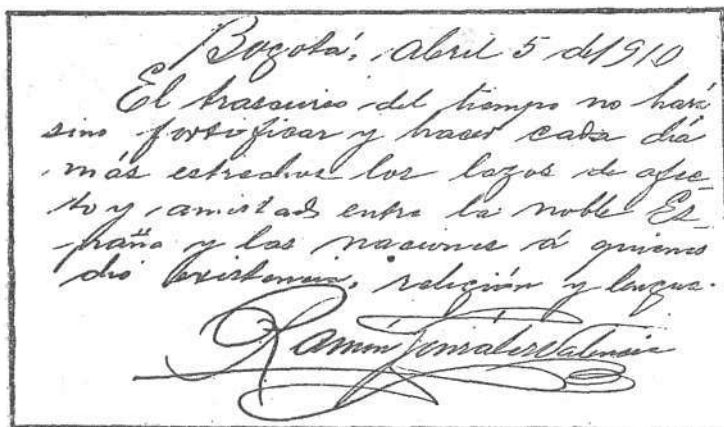 Bogotá, abril 5 de 1910
El trascurso del tiempo no hará
sino fortificar y hacer cada día
más estrechos los lazos de afec-
to y amistad entre la noble Es-
paña y las naciones á quienes
dió existencia, religión y lengua.
Ramón González Valencia